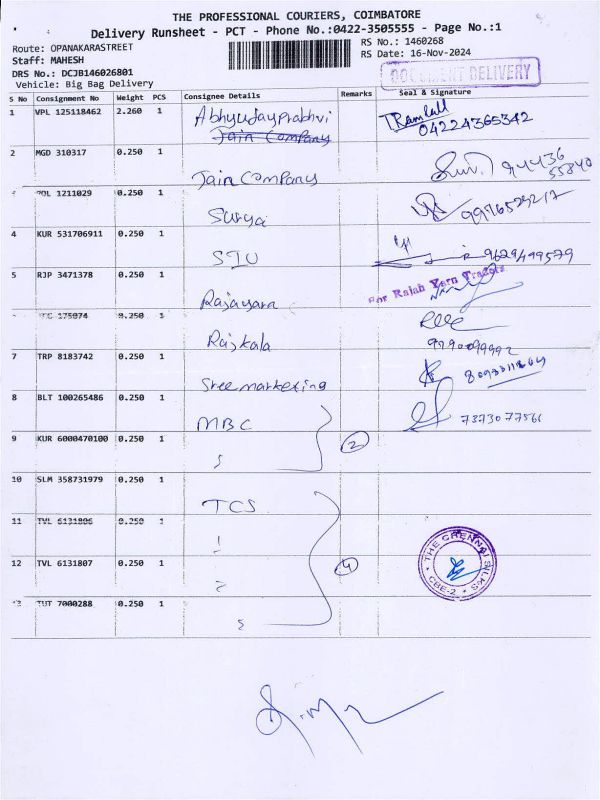 THE PROFESSIONAL COURIERS, COIMBATORE
Delivery Runsheet - PCT - Phone No.:0422-3505555 - Page No.:1
Route: OPANAKARASTREET
RS No.: 1460268
Staff: MAHESH
RS Date: 16-Nov-2024
DRS No.: DCJB146026801
DOCUMENT DELIVERY
Vehicle: Big Bag Delivery
S No Consignment No Weight PCS Consignee Details Remarks Seal & Signature
1 VPL 125118462 2.260 1 Abhyudayprabhvi
Jain Company
04224365342
2 MGD 310317 0.250 1 Jain Company
94436
55840
1211029 0.250 1 Surya
4 KUR 531706911 0.250 1 STU
9629499579
5 RJP 3471378 0.250 1 Rajayarn
For Rajah Yarn Traders
175074 0.250 1 Rajkala
7 TRP 8183742 0.250 1 Sree marketing
8 BLT 100265486 0.250 1 MBC
7373077561
9 KUR 6000470100 0.250 1
2
10 SLM 358731979 0.250 1 TCS
11 TVL 6131806 0.250 1
12 TVL 6131807 0.250 1
4
THE CHENNAI SILKS
CBE-2
TUT 7000288 0.250 1